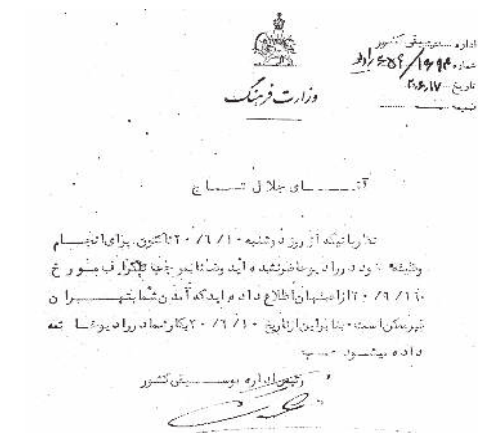 وزارت فرهنگ
اداره موسیقی کشور
شماره ۱۶۹۴/
تاریخ ۲۰.۶.۱۷
ضمیمه
آقـــای جلال تـــاج
نظر باینکه از روز دوشنبه ۲۰/۶/۱۰ تاکنون برای انجـــام
وظیفه خود در رادیو حاضر نشده اید و بموجب تلگراف مورخ
۲۰/۶/۱۶ از اصفهان اطلاع داده اید که آمدن شما بتهـــران
غیرممکن است بنابراین از تاریخ ۲۰/۶/۱۰ بکار شما در رادیو خاتمه
داده میشـــود
رئیس اداره موسـیقی کشور